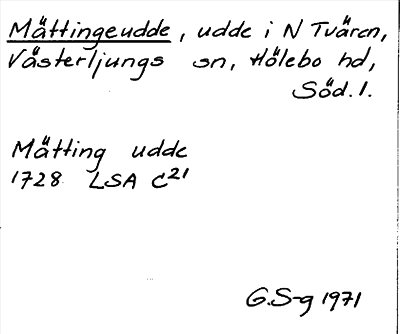 Mättingeudde, udde i N Tvären,
Västerljungs sn, Hölebo hd,
Söd. l.
Mätting udde
1728 LSA C21
G.S-g 1971